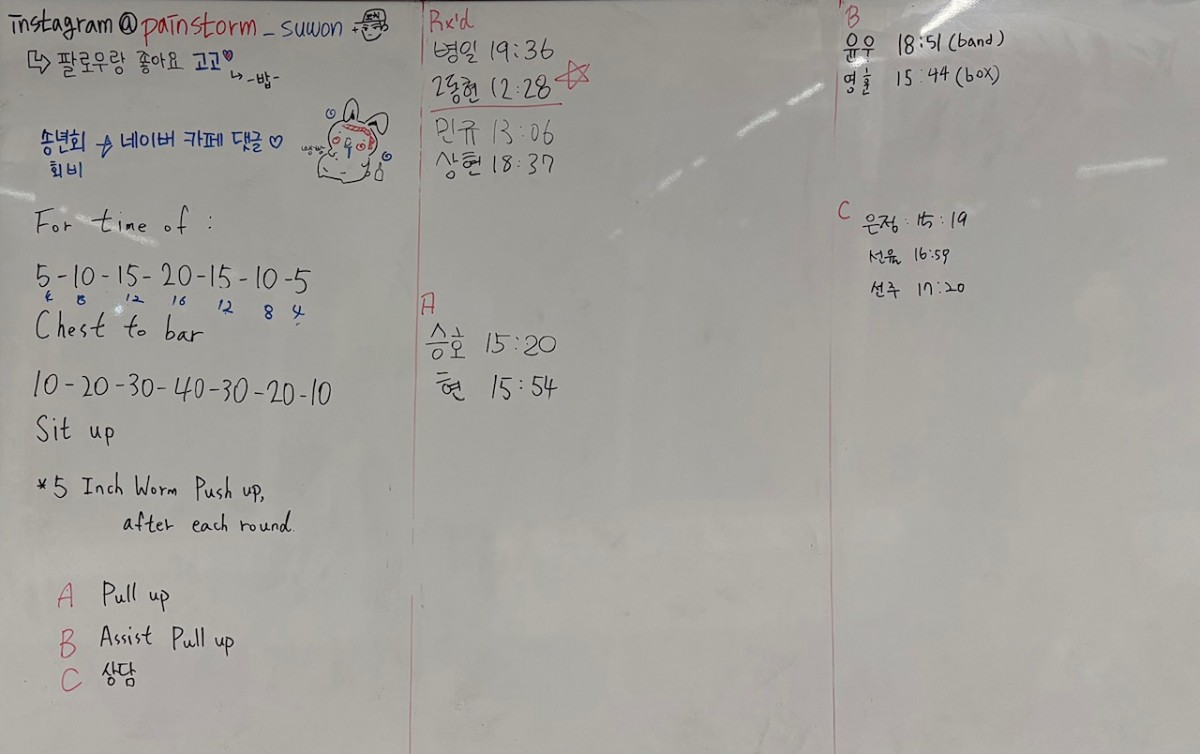 instagram@painstorm_suwon
팔로우랑 좋아요 고고♥
-밥-
송년회 → 네이버 카페 댓글 ♡
회비
For time of :
5-10-15-20-15-10-5
4 8 12 16 12 8 4
Chest to bar
10-20-30-40-30-20-10
Sit up
*5 Inch Worm Push up,
after each round.
A Pull up
B Assist Pull up
C 상담
Rx'd
병일 19:36
2동현 12:28 ☆
민규 13:06
상현 18:37
A
승호 15:20
현 15:54
B
윤우 18:51 (band)
영훈 15:44 (box)
C
은정 : 15:19
선율 16:59
선주 17:20